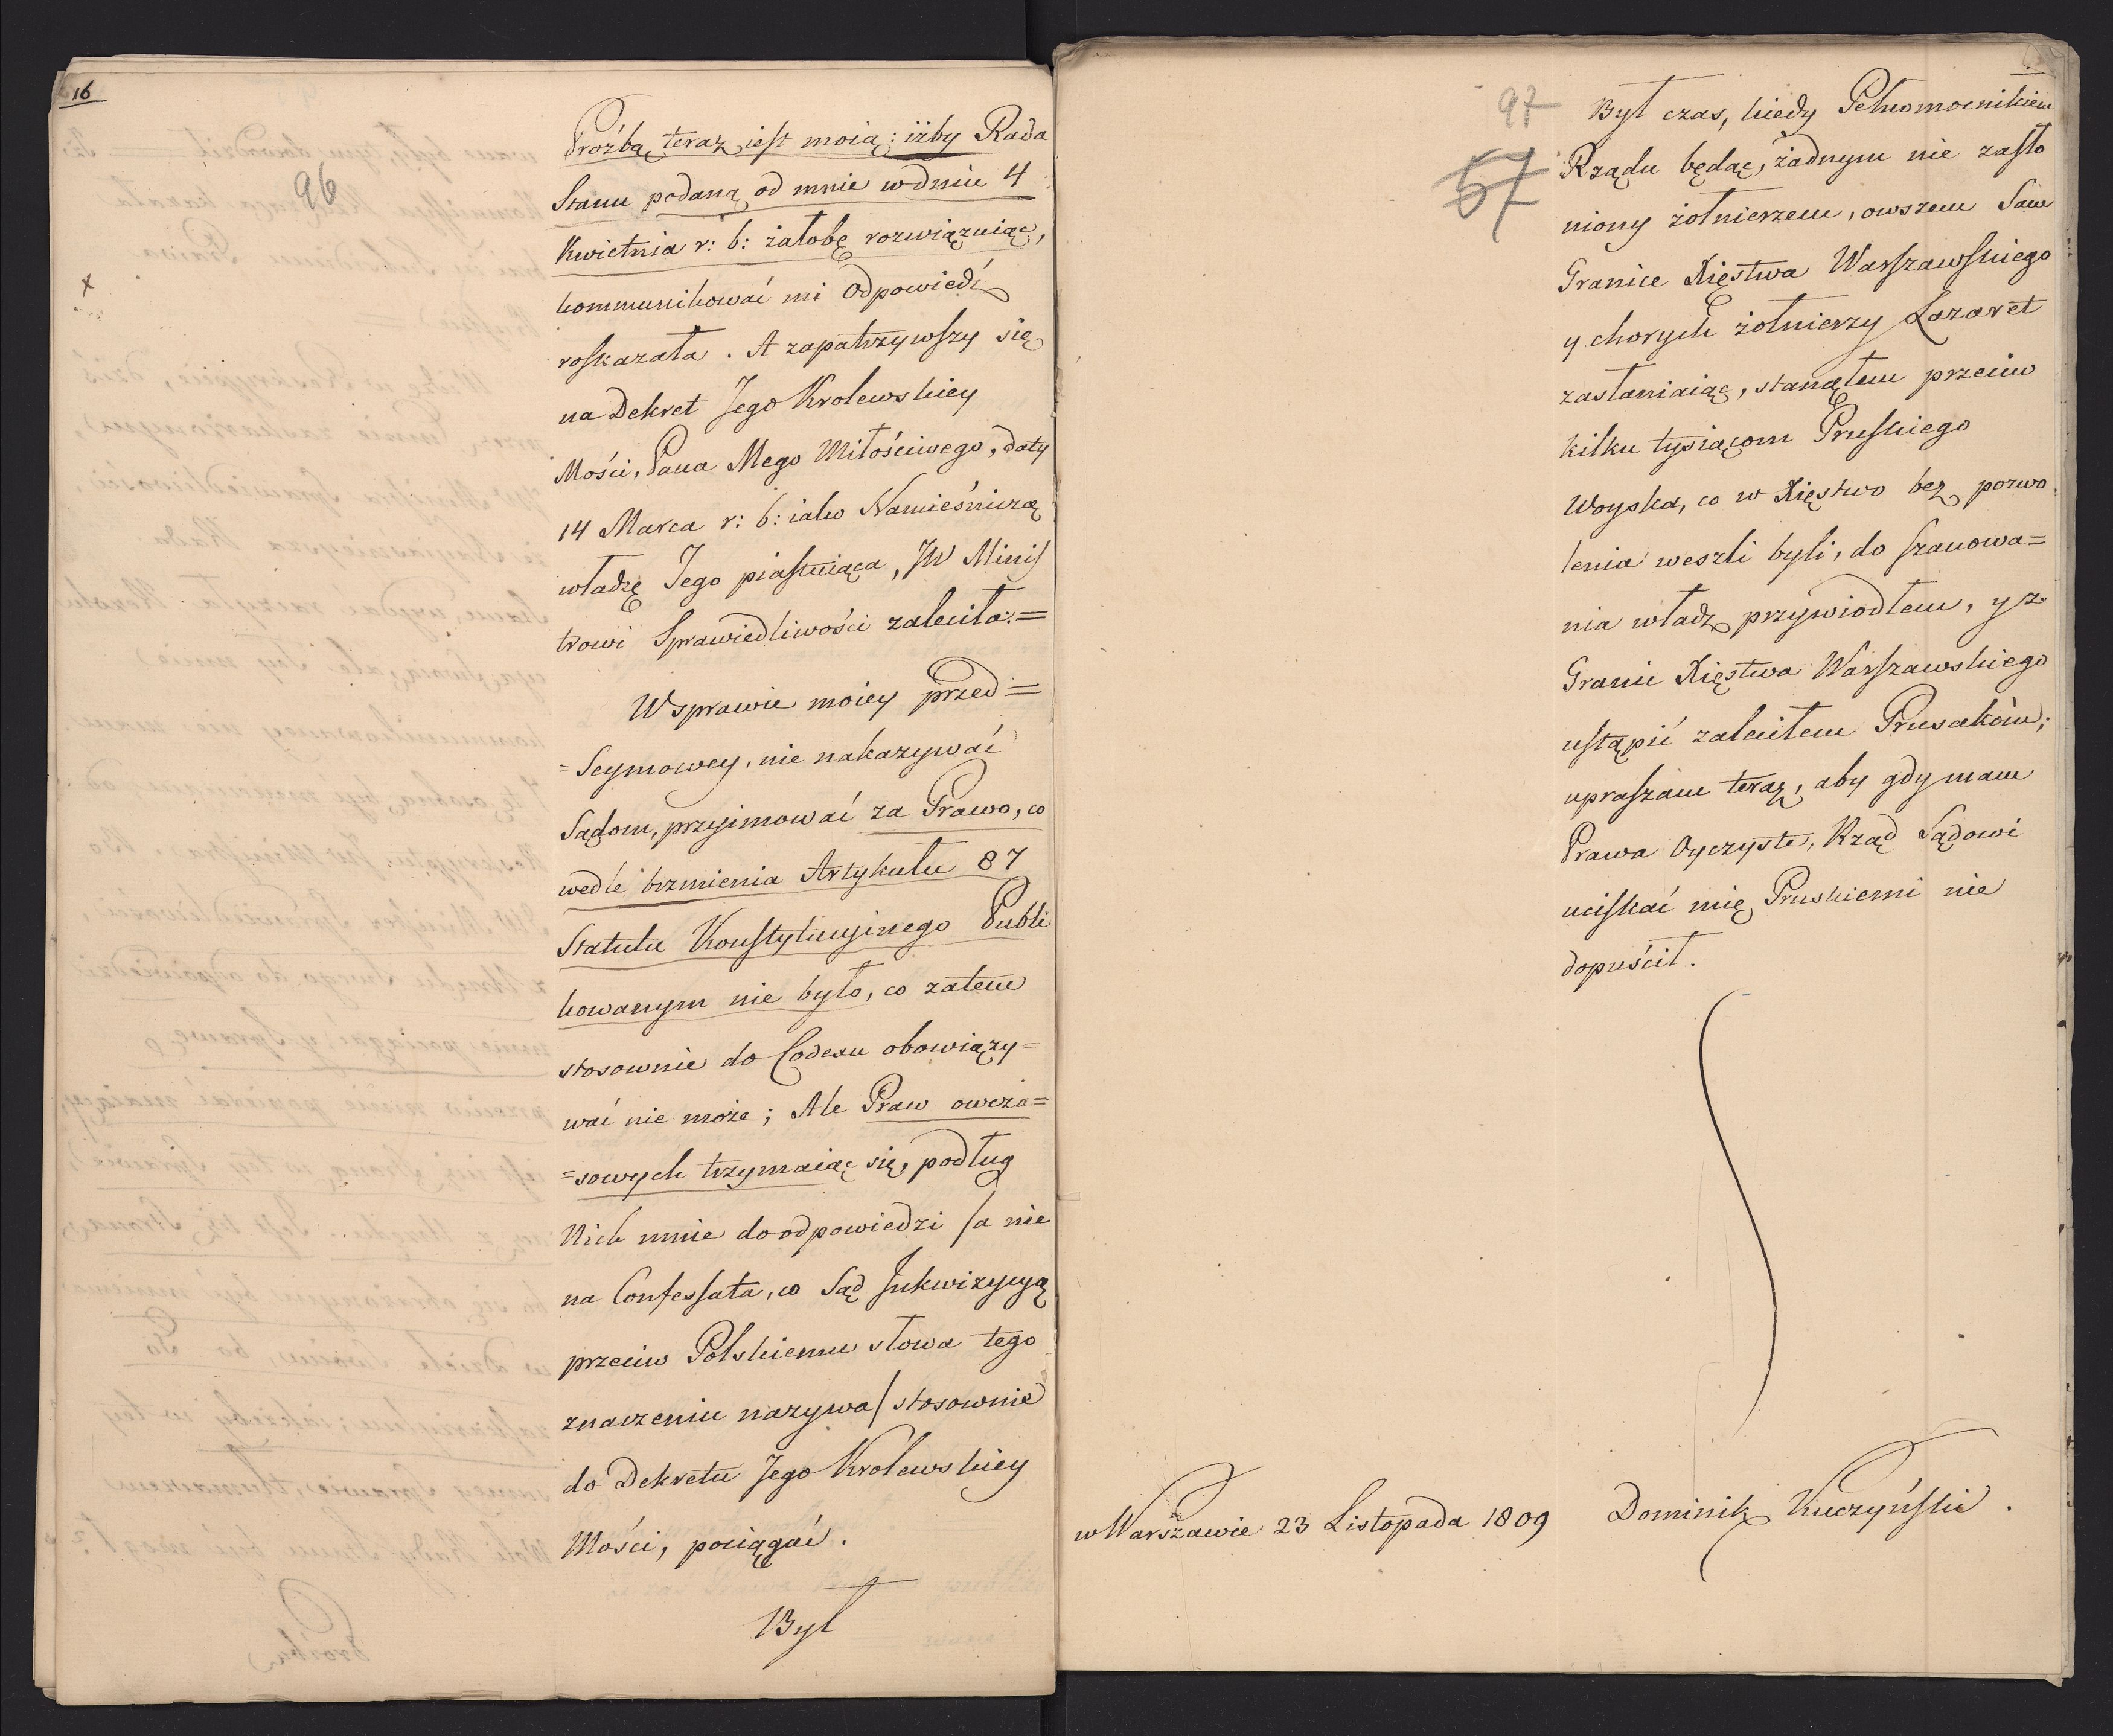 16
96
Proźbą teraz iest moią: iżby Rada
Stanu podaną od mnie w dniu 4
Kwietnia r: b: żałobę rozwiązuiąc,
kommunikować mi Odpowiedź
roskazała. A zapatrzywszy się
na Dekret Jego Krolewskiey
Mości, Pana Mego Miłościwego, daty
14 Marca r: b: iako Namieśniczą
władzę Jego piastuiąca, JW Minis
trowi Sprawiedliwości zaleciła:=
W sprawie moiey przed=
=Seymowey, nie nakazywać
Sądom, przyimować za Prawo, co
wedle brzmienia Artykułu 87
Statutu Konstytucyinego Publi
kowanym nie było, co zatem
stosownie do Codexu obowiązy=
wać nie może; Ale Praw owcza=
=sowych trzymaiąc się, podług
Nich mnie do odpowiedzi /a nie
na Confessata, co Sąd Inkwizycyą
przeciw Polskiemu słowa tego
znaczeniu nazywa/ stosownie
do Dekretu Jego Królewskiey
Mości, pociągać.
Był
97
57
Był czas, kiedy Pełnomocnikiem
Rządu będąc, żadnym nie zasło
niony żołnierzem, owszem Sam
Granice Xięstwa Warszawskiego
y chorych żołnierzy Lazaret
zasłaniaiąc, stanąłem przeciw
kilku tysiącom Pruskiego
Woyska, co w Xięstwo bez pozwo
lenia weszli byli, do szanowa=
nia władz przywiodłem, y z
Granic Xięstwa Warszawskiego
ustąpić zaleciłem Prusakóm;
upraszam teraz, aby gdy mam
Prawa Oyczyste, Rząd Sądowi
uciskać mię Pruskiemi nie
dopuścił.
w Warszawie 23 Listopada 1809 Dominik Kuczyński.